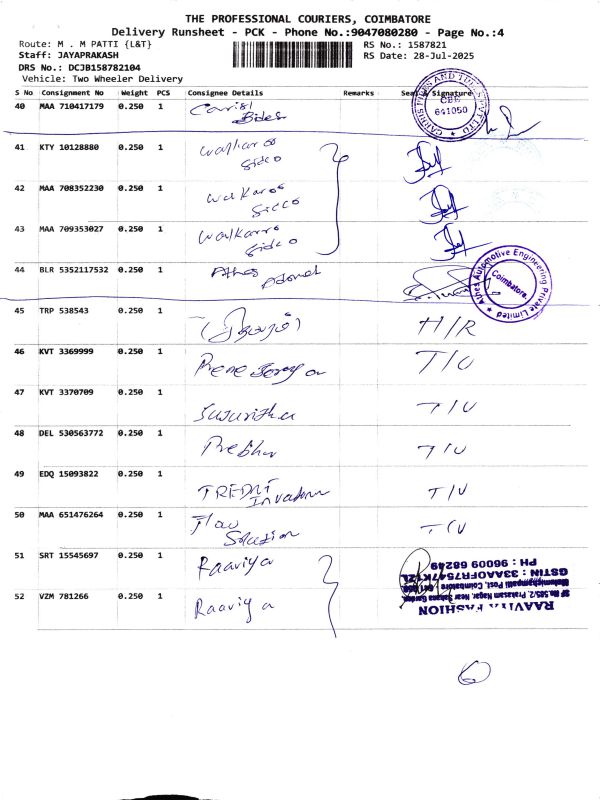 THE PROFESSIONAL COURIERS, COIMBATORE
Delivery Runsheet - PCK - Phone No.:9047080280 - Page No.:4
Route: M . M PATTI {L&T} RS No.: 1587821
Staff: JAYAPRAKASH RS Date: 28-Jul-2025
DRS No.: DCJB158782104
Vehicle: Two Wheeler Delivery
S No Consignment No Weight PCS Consignee Details Remarks Seal & Signature
40 MAA 710417179 0.250 1
CBE
641050
41 KTY 10128880 0.250 1 walkaroo
sidco
42 MAA 708352230 0.250 1 walkaroo
sidco
43 MAA 709353027 0.250 1 walkaroo
sidco
44 BLR 5352117532 0.250 1 Athos
Athos Automotive Engineering Private Limited
Coimbatore.
45 TRP 538543 0.250 1 H/R
46 KVT 3369999 0.250 1 T/U
47 KVT 3370709 0.250 1 T/U
48 DEL 530563772 0.250 1 Prebhu T/U
49 EDQ 15093822 0.250 1 T/U
50 MAA 651476264 0.250 1 Flow T/U
Solution
51 SRT 15545697 0.250 1 Raaviya
52 VZM 781266 0.250 1 Raaviya
RAAVIYA FASHION
SF No.585/2, Prakasam Nagar, Near Sahana Garden,
Malumichampatti Post, Coimbatore
GSTIN : 33AAOFR7547K1ZL
PH : 96009 68249
6